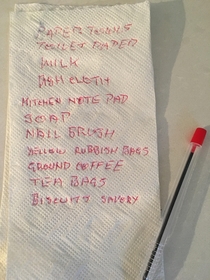 PAPER TOWELS
TOILET PAPER
MILK
DISH CLOTH
KITCHEN NOTE PAD
SOAP
NAIL BRUSH
YELLOW RUBBISH BAGS
GROUND COFFEE
TEA BAGS
BISCUITS SAVORY